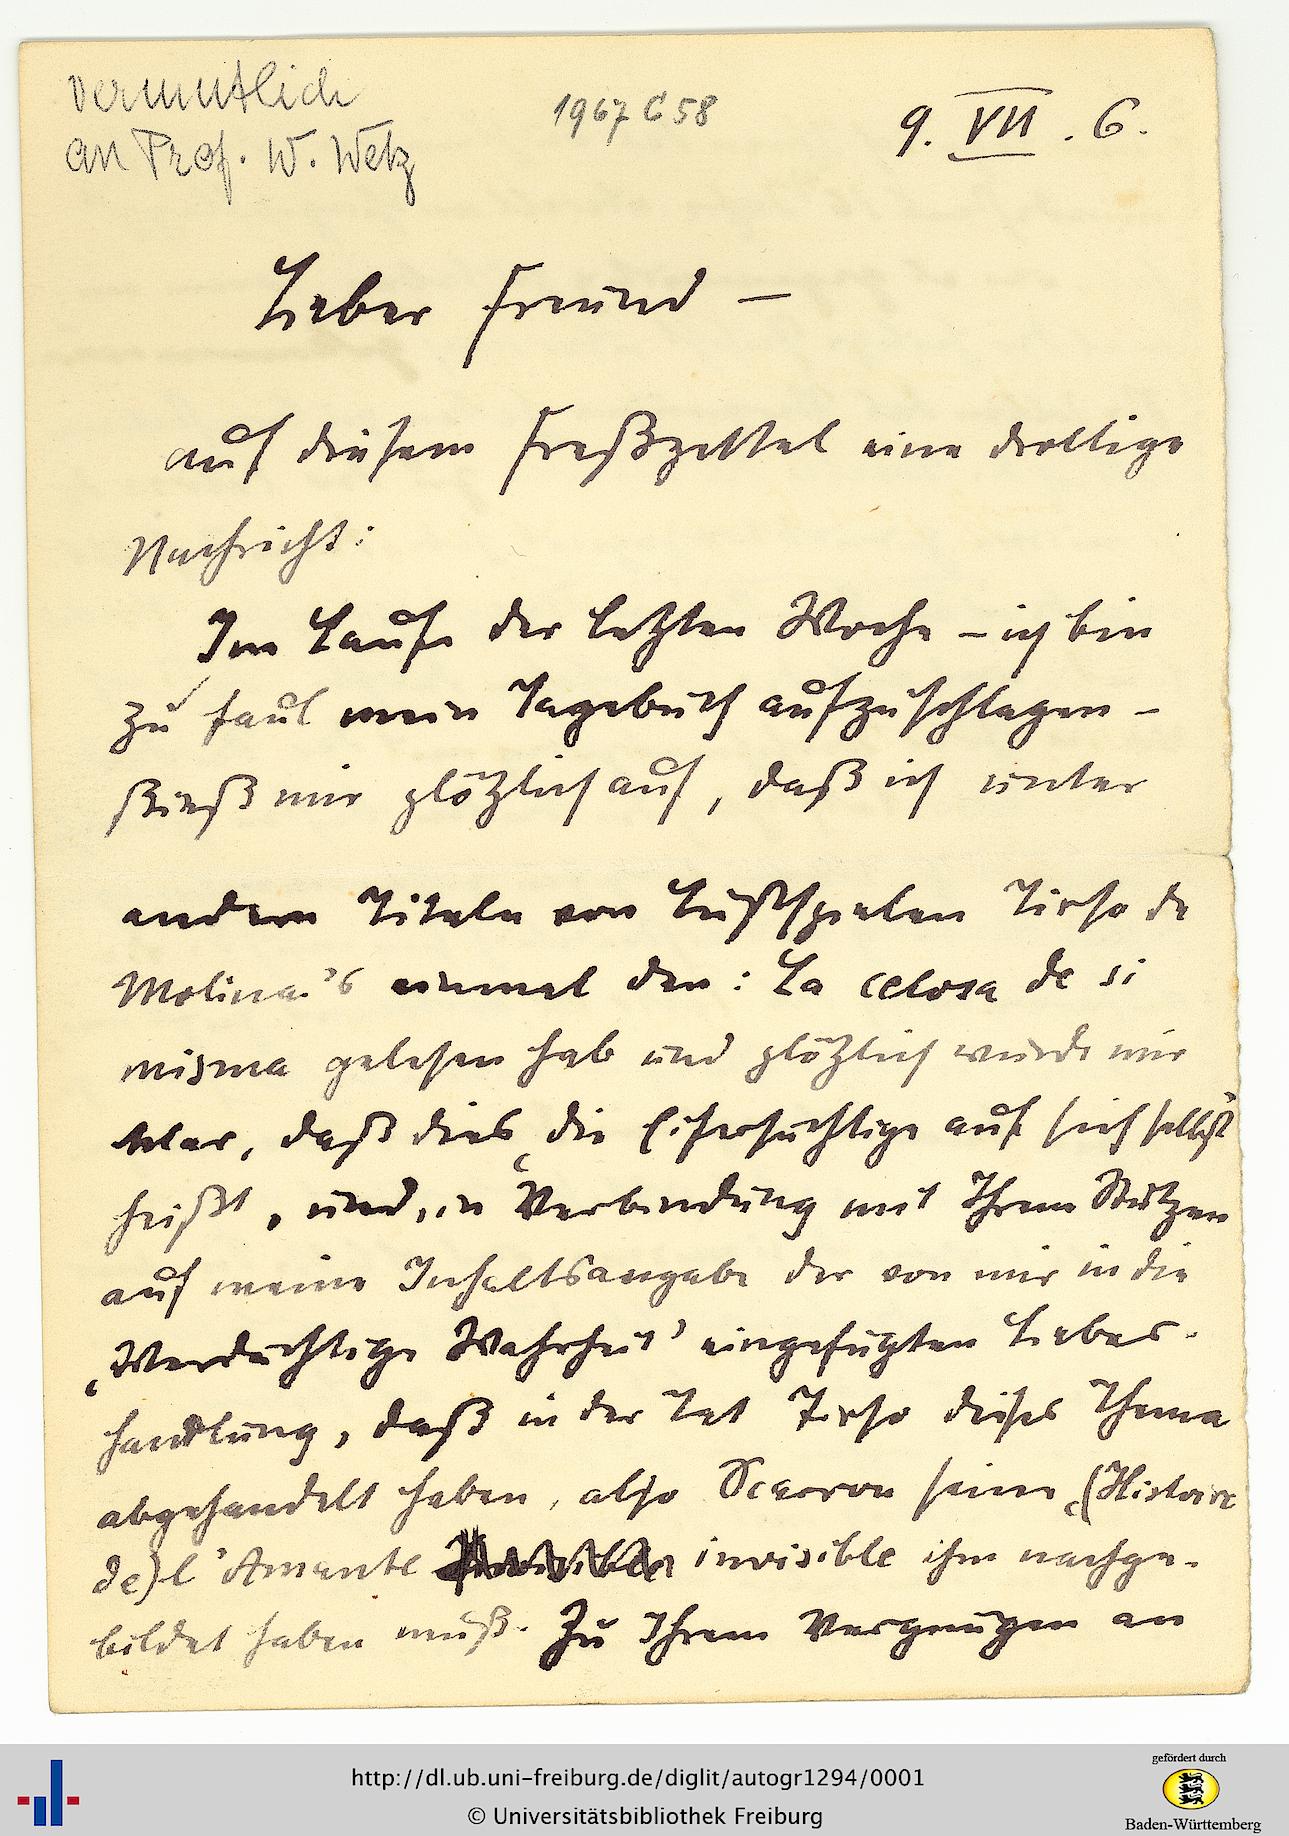 vermutlich
an Prof. W. Wetz
1967 C 58
9. VII. 6.
Lieber Freund —
auf diesem Freßzettel eine drollige
Nachricht:
Im Laufe der letzten Woche – ich bin
zu faul mein Tagebuch aufzuschlagen –
stieß mir plötzlich auf, daß ich unter
andern Titeln von Lustspielen Tirso de
Molina's einmal den: La celosa de si
misma gelesen hab und plötzlich wurde mir
klar, daß dies ‚die Eifersüchtige auf sich selbst
heißt, und, in Verbindung mit Ihrem Stutzen
auf meine Inhaltsangabe der von mir in die
‚Verdächtige Wahrheit' eingefügten Liebes-
handlung, daß in der Tat Tirso dieses Thema
abgehandelt haben, also Scarron seine (Histoire
de) l'Amante invisible ihm nachge-
bildet haben muß. Zu Ihrem Vergnügen an
http://dl.ub.uni-freiburg.de/diglit/autogr1294/0001
© Universitätsbibliothek Freiburg
gefördert durch
Baden-Württemberg